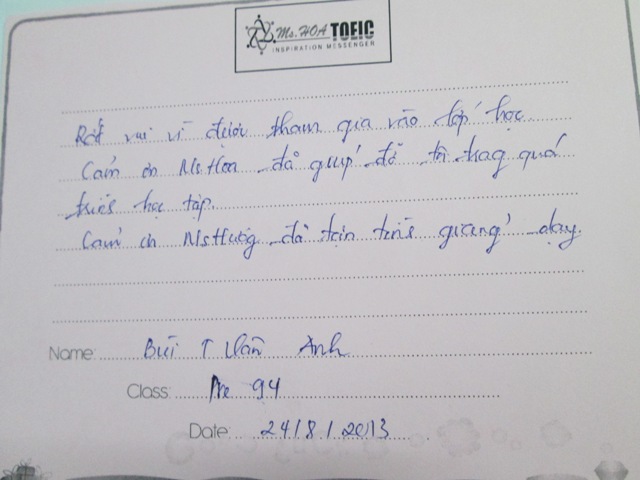 Ms. HOA TOEIC
INSPIRATION MESSENGER
Rất vui vì được tham gia vào lớp học
Cảm ơn Ms Hoa đã giúp đỡ tôi trog quá
trình học tập.
Cảm ơn Ms Hương đã tận tình giảng dạy.
Name: Bùi T Vân Anh
Class: Pre 94
Date: 24/8/2013